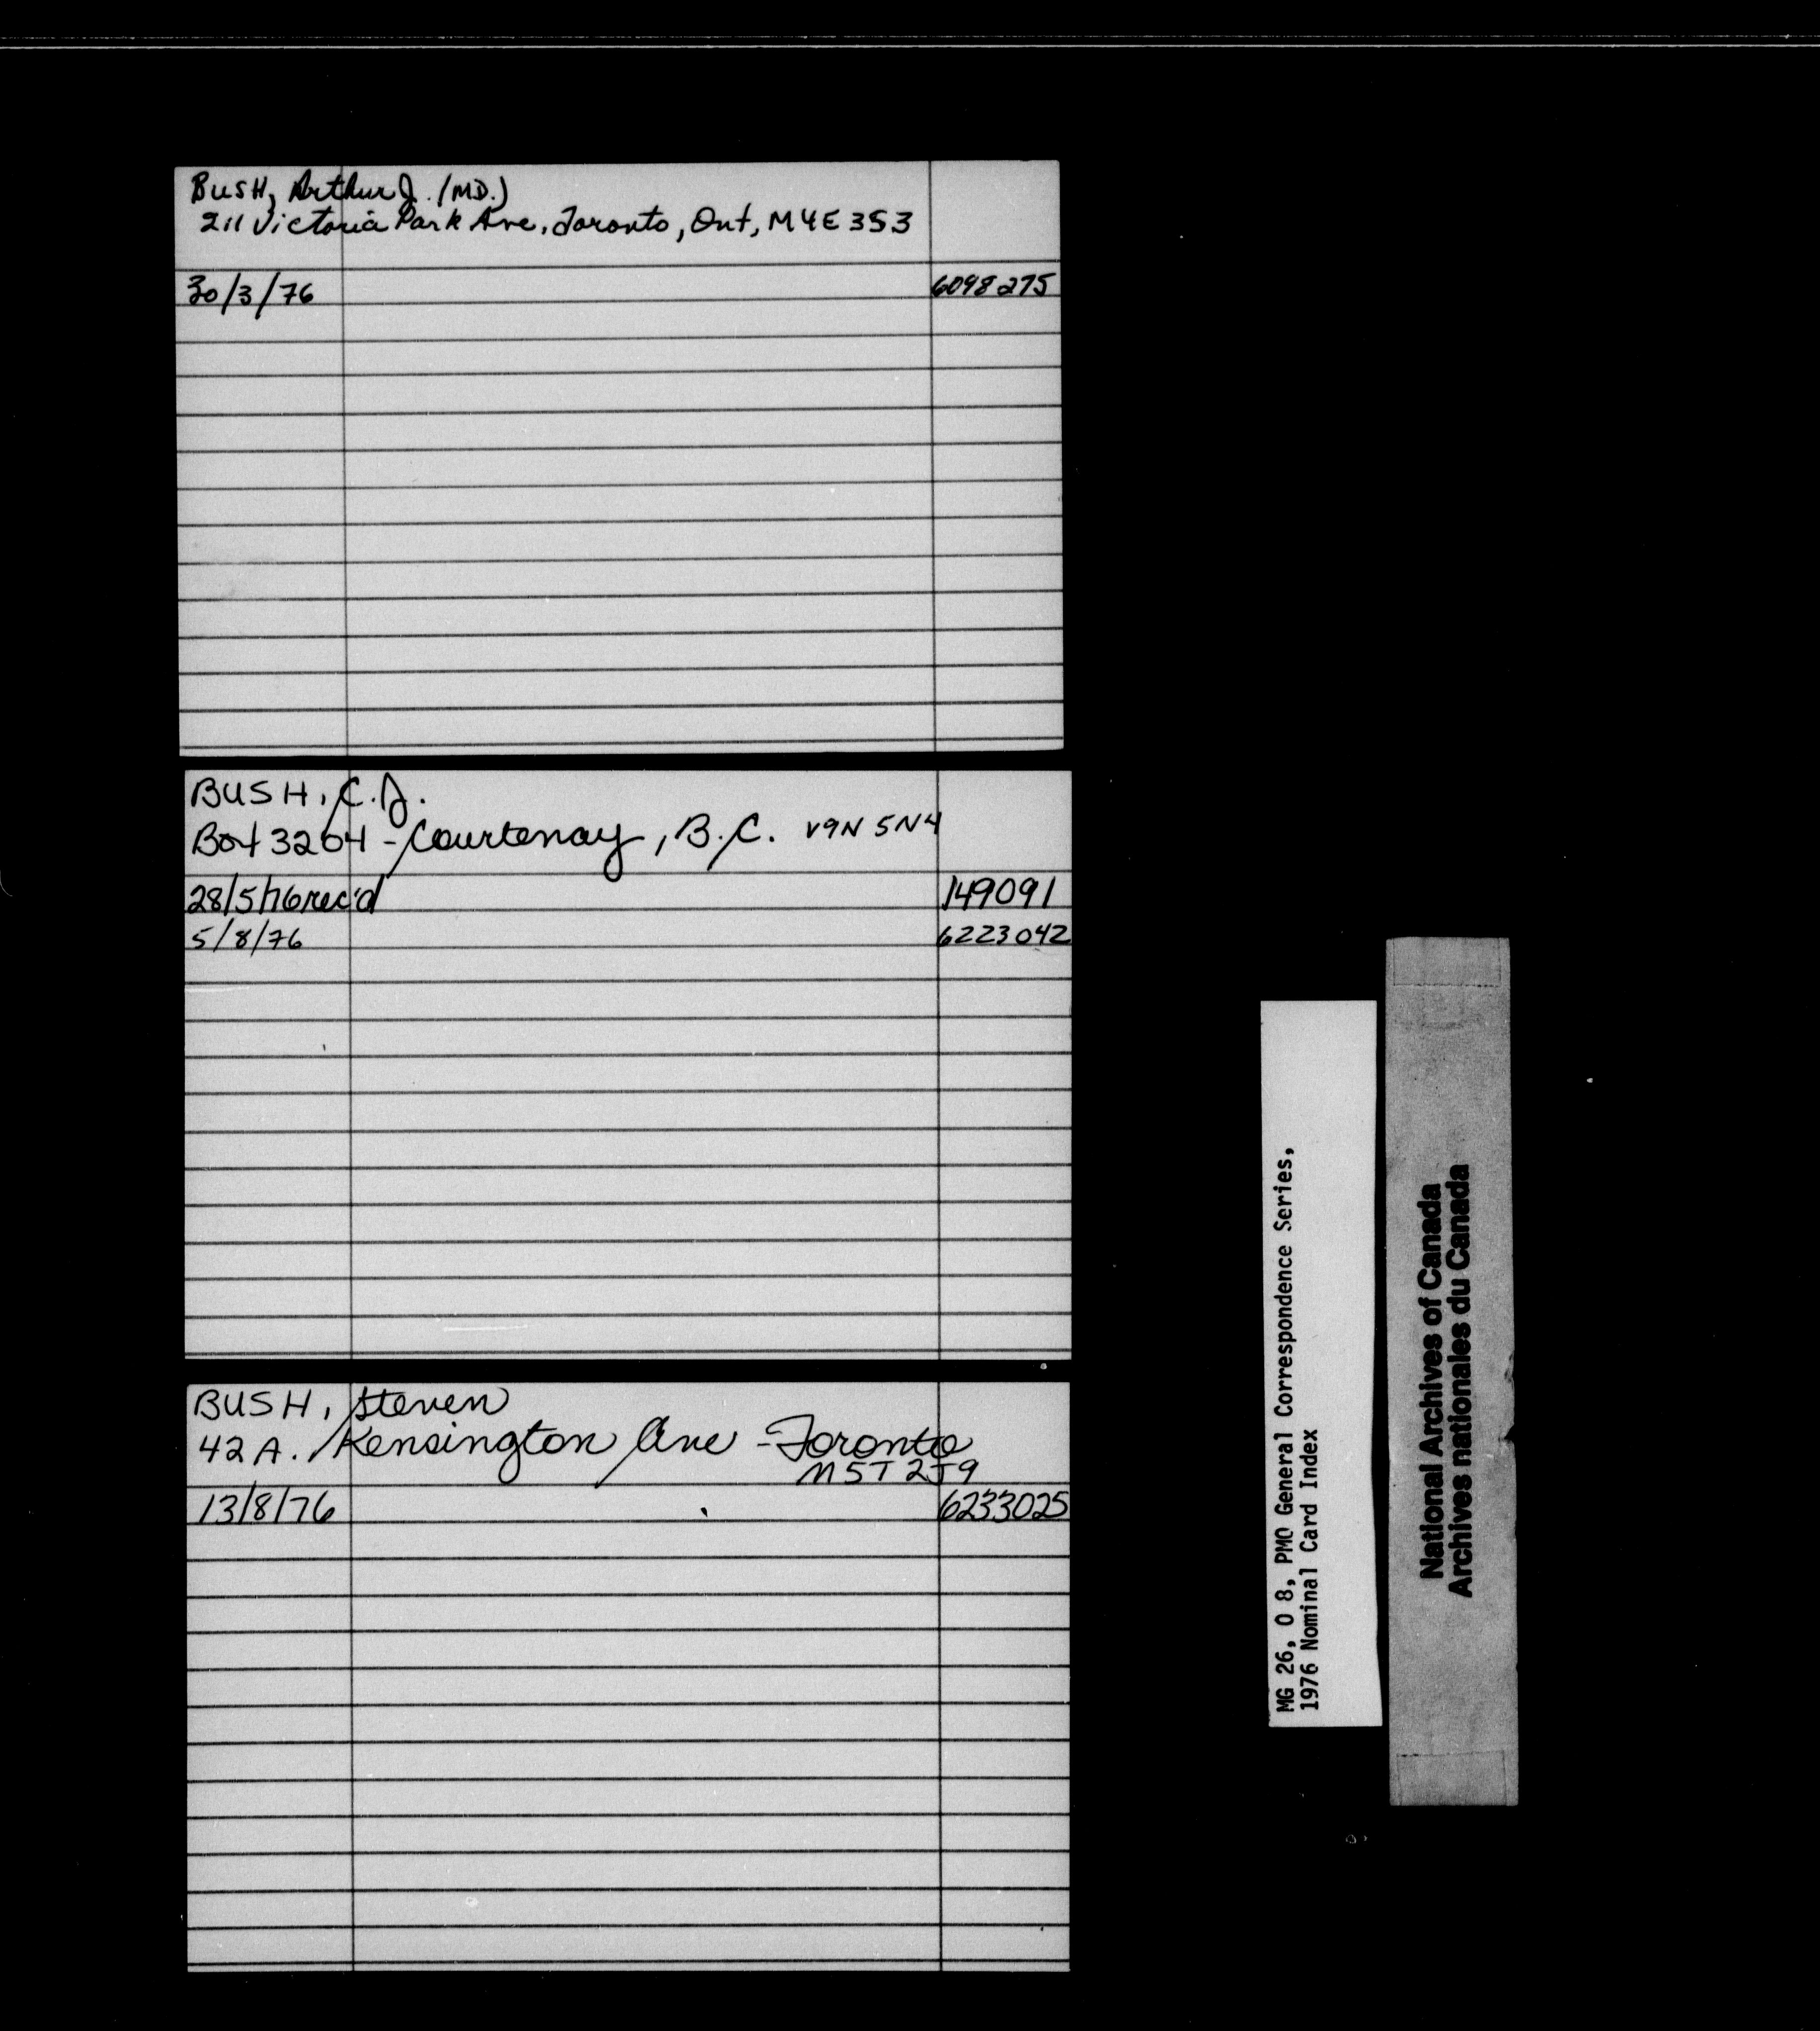 BUSH, Arthur J. (MD.)
211 Victoria Park Ave, Toronto, Ont, M4E 3S3
30/3/76 6098275
BUSH, C.J.
Box 3204 - Courtenay, B.C. V9N 5N4
28/5/76 rec'd 149091
5/8/76 6223042
BUSH, Steven
42A. Kensington Ave - Toronto
M5T 2J9
13/8/76 6233025
MG 26, O 8, PMO General Correspondence Series,
1976 Nominal Card Index
National Archives of Canada
Archives nationales du Canada